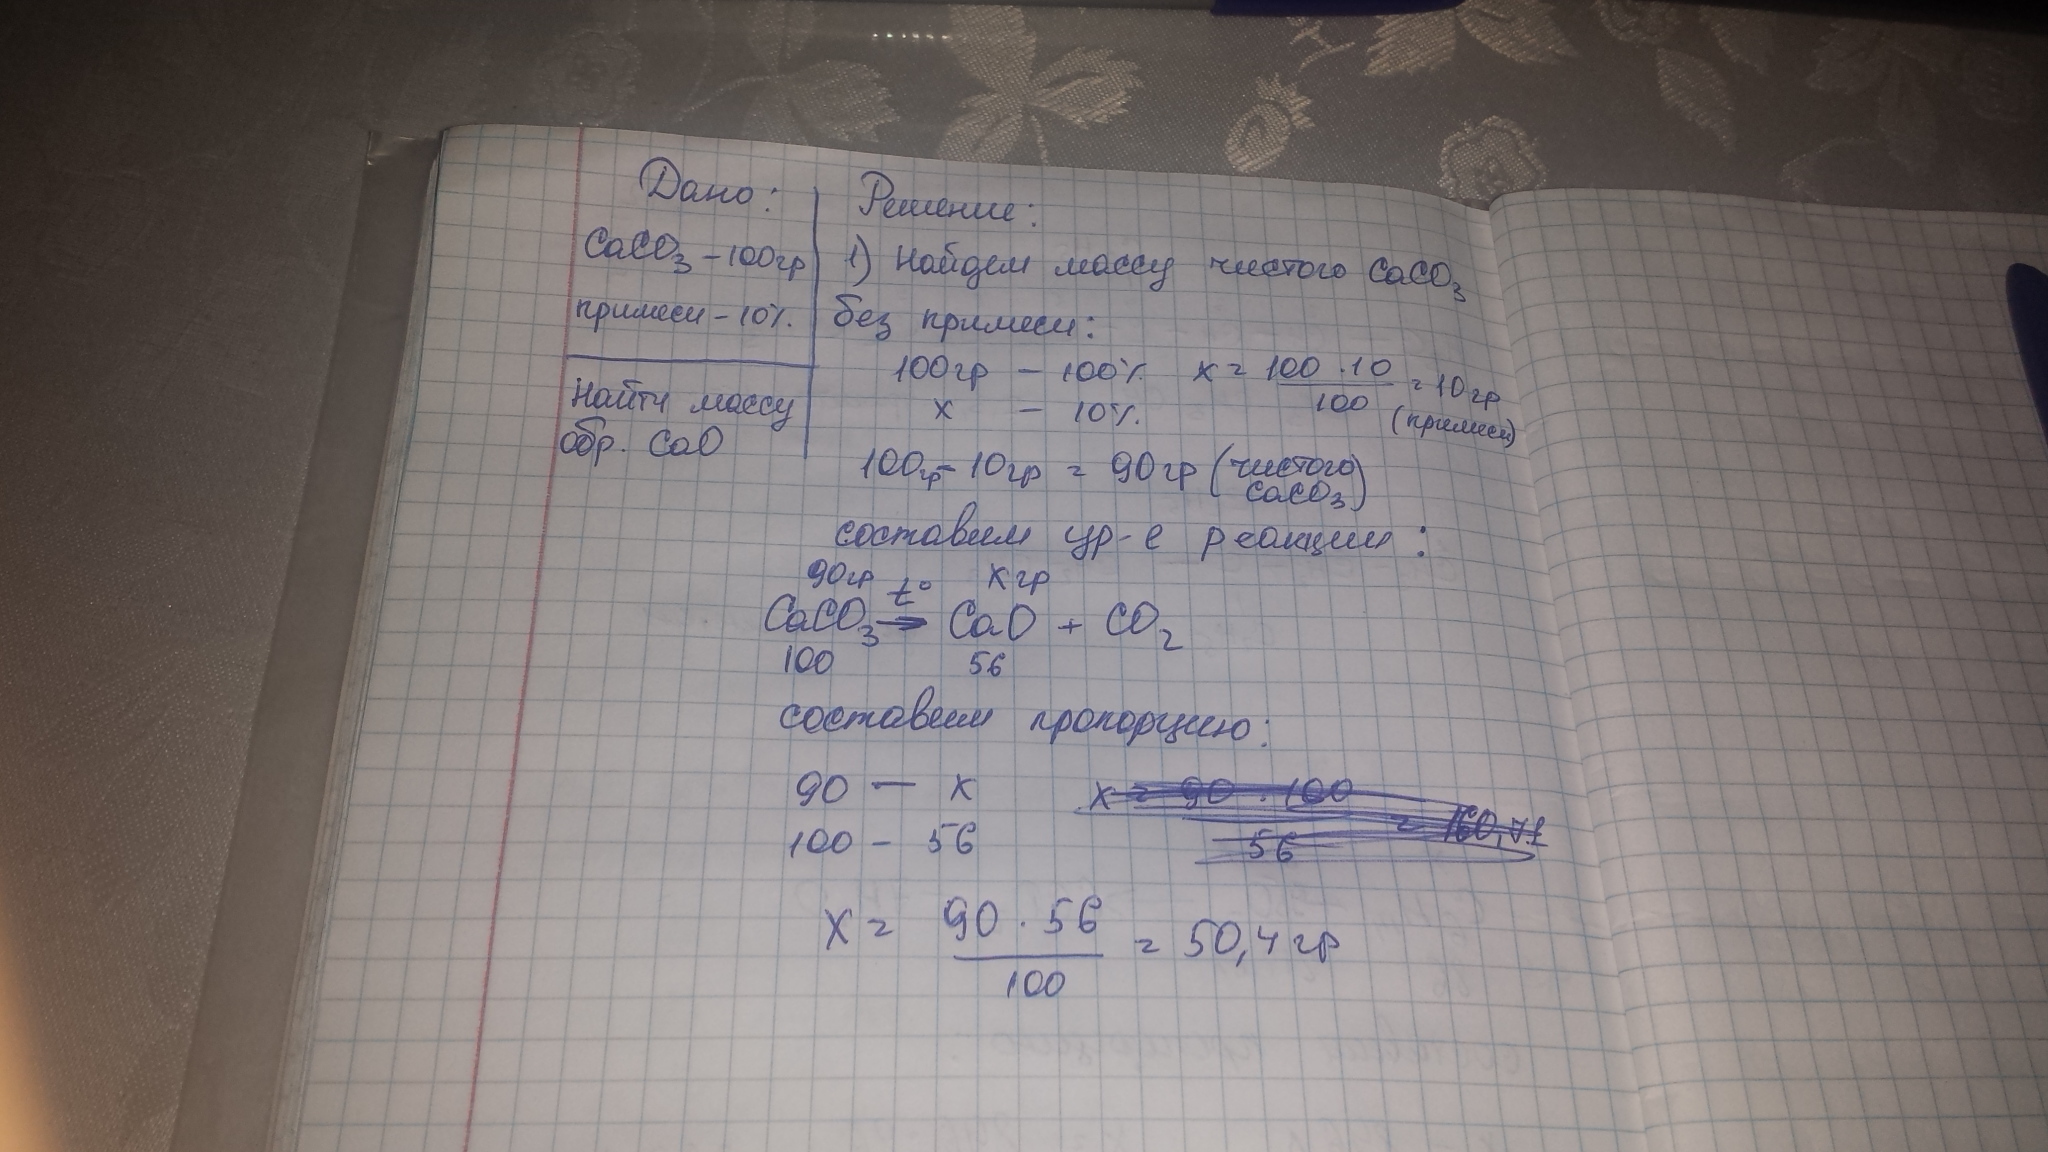 Дано:
CaCO3 - 100гр
примеси - 10%.
Найти массу
обр. CaO
Решение:
1) Найдем массу чистого CaCO3
без примеси:
100гр - 100% x = 100 · 10 / 100 = 10гр
x - 10%. (примеси)
100гр - 10гр = 90гр (чистого
CaCO3)
составим ур-е реакции:
90гр t° x гр
CaCO3 → CaO + CO2
100 56
составим пропорцию:
90 — x x = 90 · 100 / 56 = 160,71
100 - 56
x = 90 · 56 / 100 = 50,4 гр